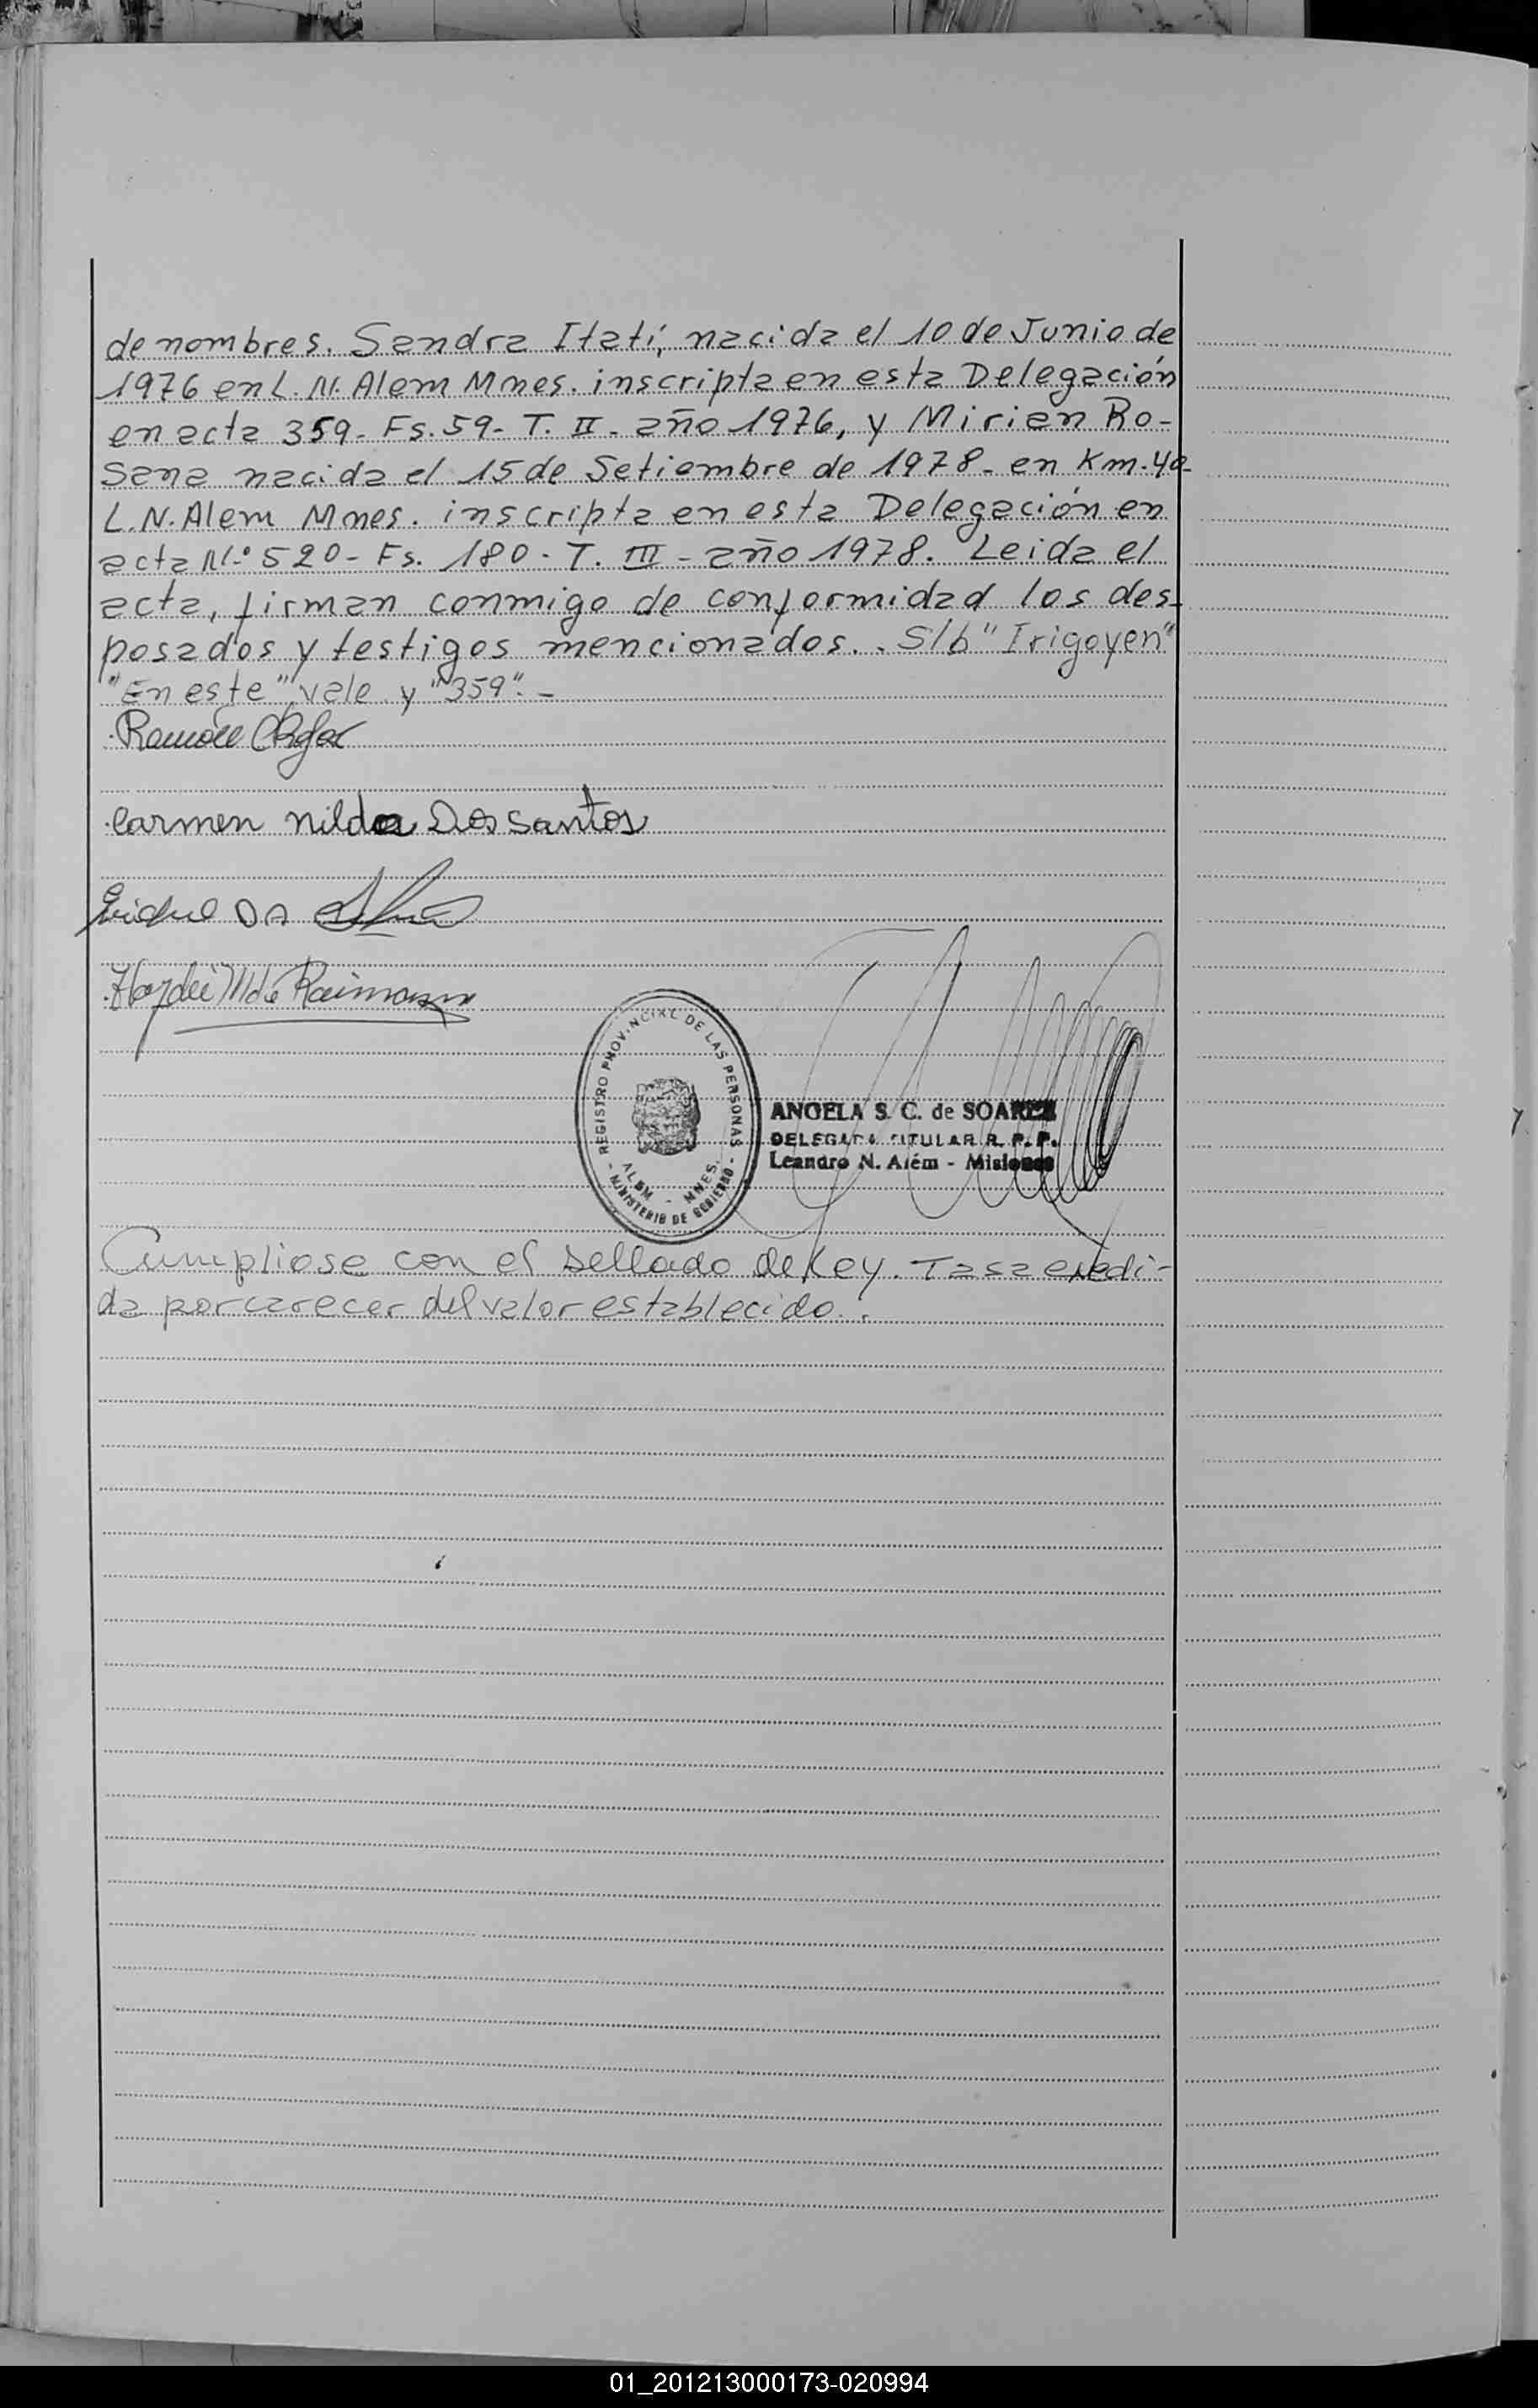 de nombres. Sandra Itatí, nacida el 10 de Junio de
1976 en L. N. Alem Mnes. inscripta en esta Delegación
en acta 359- Fs. 59- T. II - año 1976, y Mirian Ro-
sana nacida el 15 de Setiembre de 1978- en Km. 40-
L.N. Alem Mnes. inscripta en esta Delegación en
acta N.º 520- Fs. 180- T. III - año 1978. Leida el
acta, firman conmigo de conformidad los des-
posados y testigos mencionados.. S/b "Irigoyen"
"En este" vale y "359". -
Ramón
Carmen nilda Dos santos
DA
M de Raimann
REGISTRO PROVINCIAL DE LAS PERSONAS
ALEM - MNES.
- MINISTERIO DE GOBIERNO -
ANGELA S. C. de SOAREZ
DELEGADA TITULAR R. P. P.
Leandro N. Além - Misiones
Cumpliose con el sellado de Ley. Tasa exedi-
da por carecer del valor establecido..
01_201213000173-020994